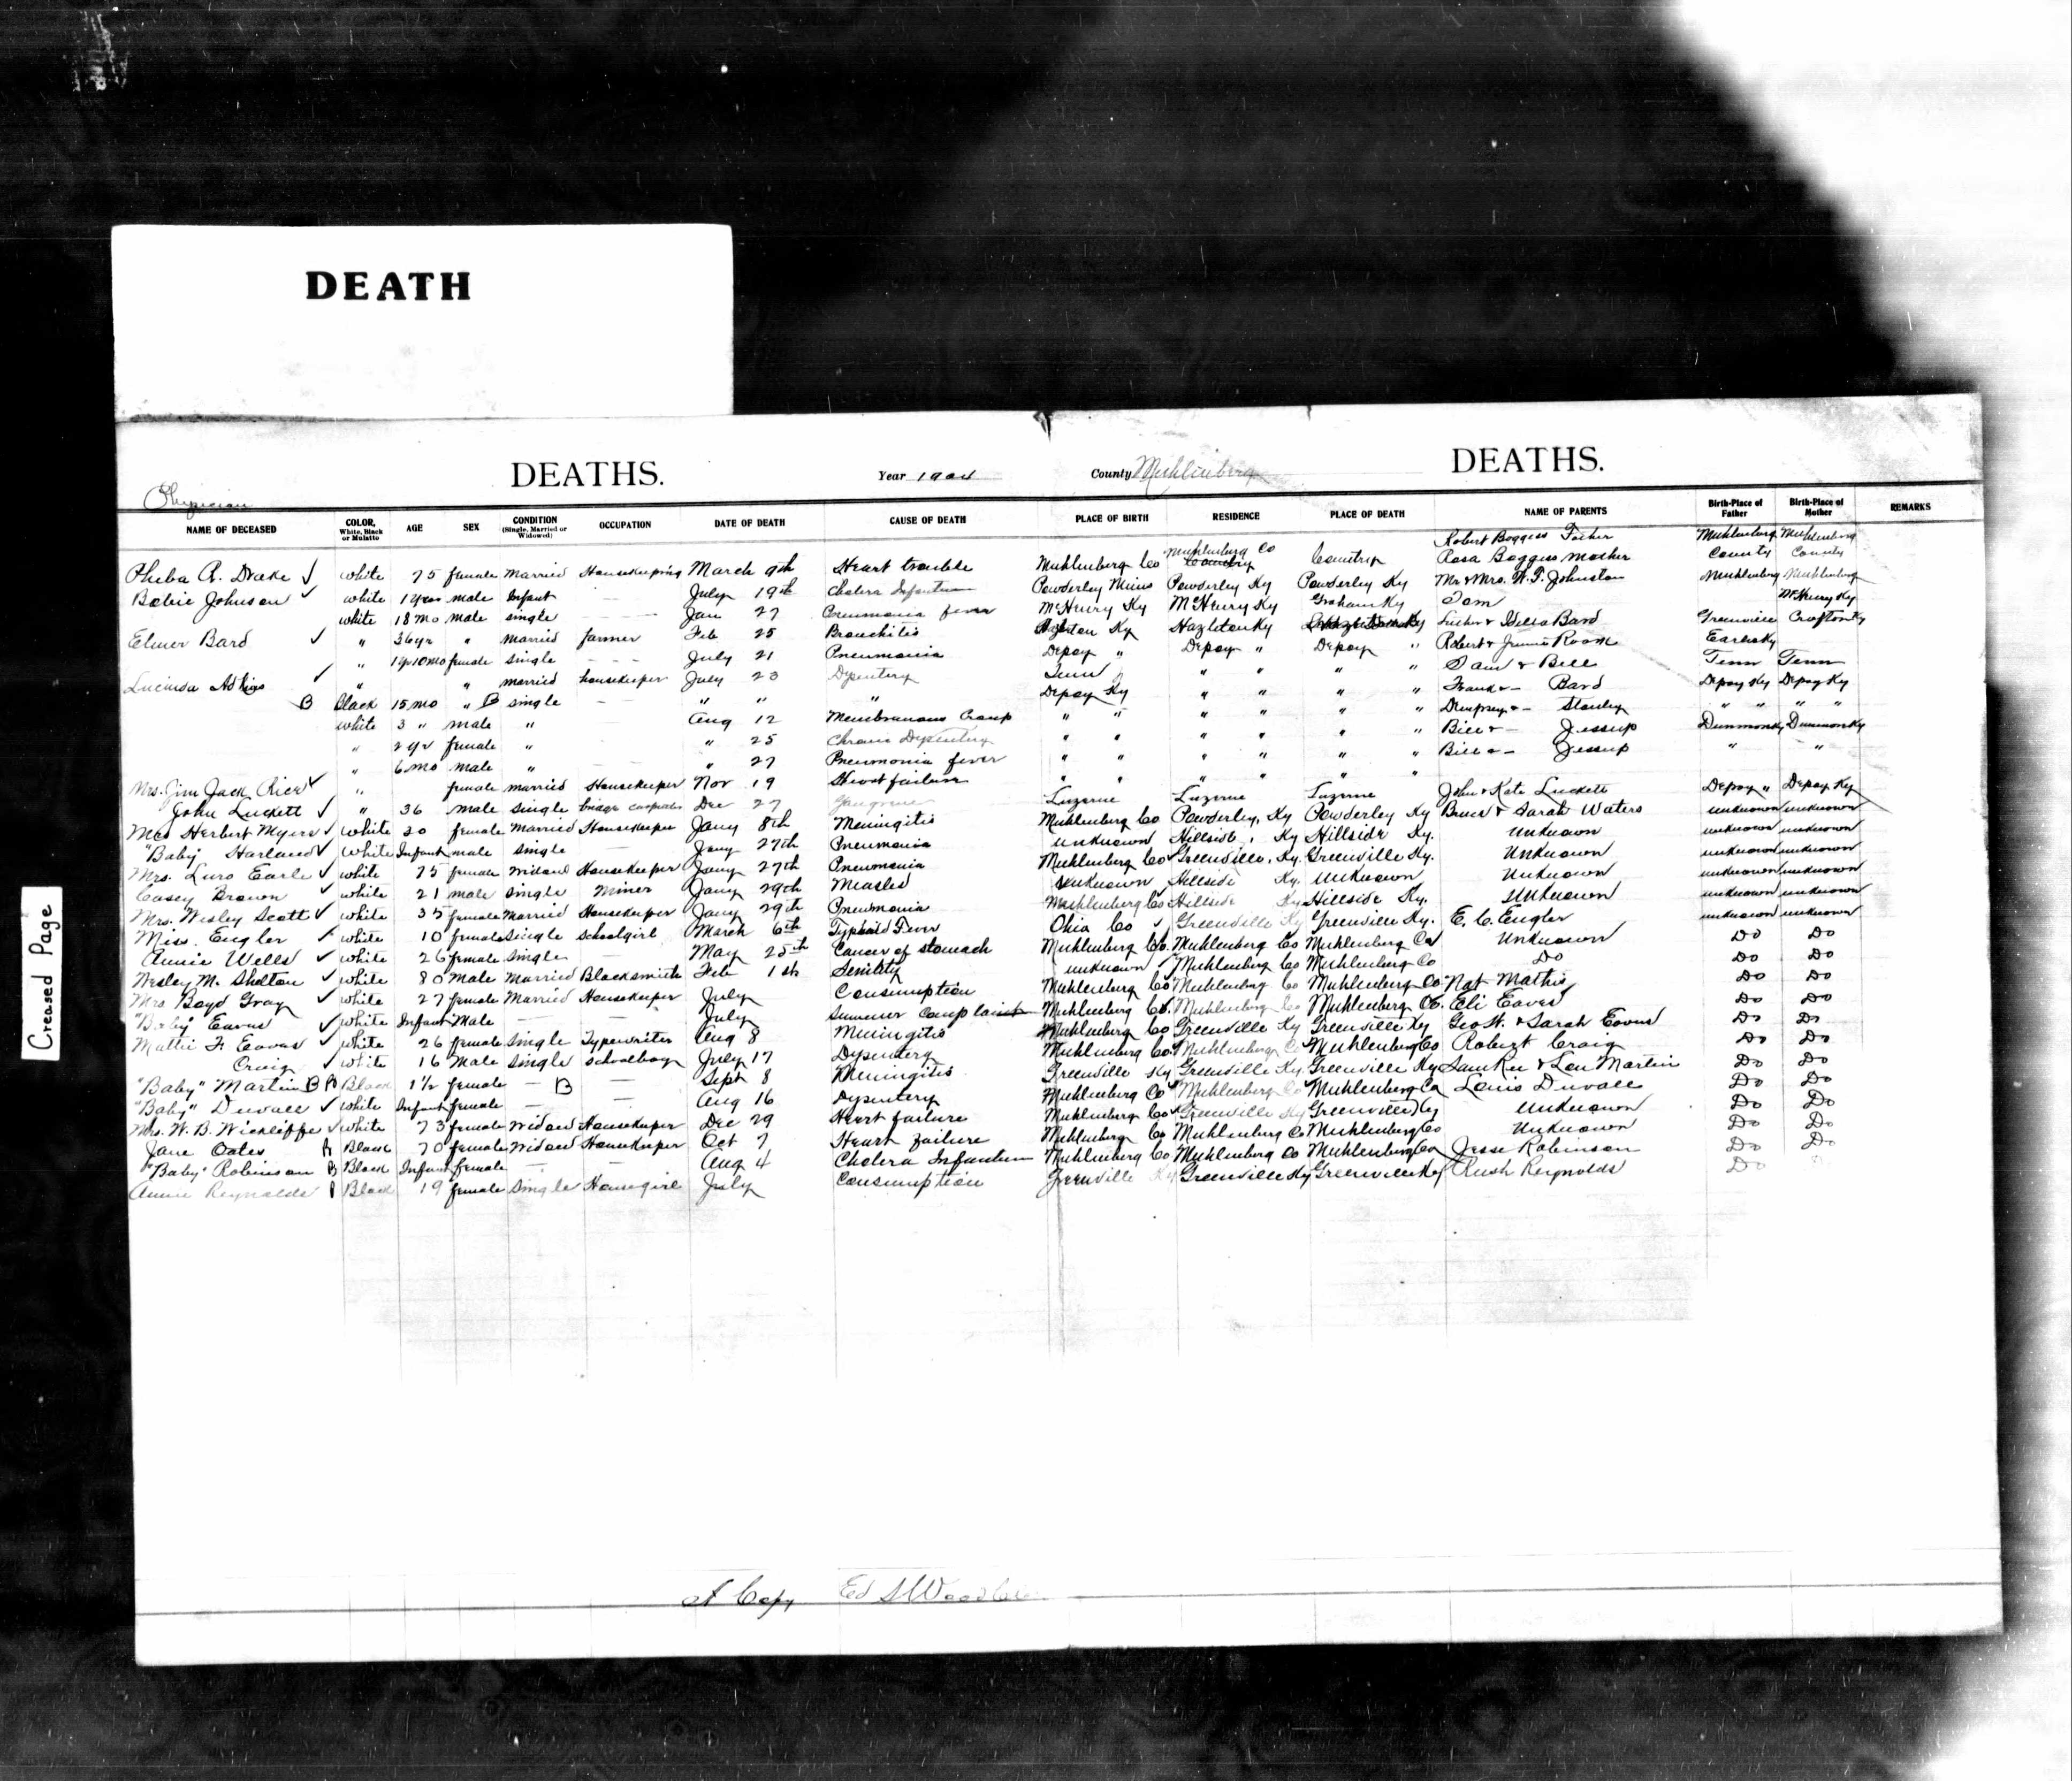 DEATH
DEATHS. Year 1904 County Muhlenberg DEATHS.
Physician
NAME OF DECEASED COLOR, White, Black or Mulatto AGE SEX CONDITION (Single, Married or Widowed) OCCUPATION DATE OF DEATH CAUSE OF DEATH PLACE OF BIRTH RESIDENCE PLACE OF DEATH NAME OF PARENTS Birth-Place of Father Birth-Place of Mother REMARKS
Robert Boggess Father Muhlenberg Muhlenberg
Pheba A. Drake ✓ white 75 female married Housekeeping March 9th Heart trouble Muhlenberg Co Muhlenberg Co Country Country Rosa Boggess Mother County County
Bobie Johnson ✓ white male Infant — July 19th Cholera Infantum Powderley Mines Powderley Ky Powderley Ky Mr & Mrs. W. T. Johnston Muhlenberg Muhlenberg
white 18 mo male single — — Jan 27 Pneumonia fever McHenry Ky McHenry Ky Graham Ky McHenry Ky
Elmer Bard ✓ " 36 yr " married farmer Feb 25 Bronchitis Ky Hazleton Ky Bard Greenville Crofton Ky
" 1 yr 10 mo female single — — — July 21 Pneumonia Depoy " Depoy " Depoy " Robert & Room
Lucinda Adkins ✓ " " married housekeeper July 23 Dysentery Tenn " " " " Sam & Bell Tenn Tenn
B Black 15 mo " B single — " " " Depoy Ky " " " " Frank & — Bard Depoy Ky Depoy Ky
white 3 " male " Aug 12 Membranous Croup " " " " " " Dempsey & — Stanley " " " "
" 2 yr female " " 25 Chronic Dysentery " " " " " " Bill & — Jessup Dunmor Ky Dunmor Ky
" 6 mo male " " 27 Pneumonia fever " " " " " " Bill & — Jessup " "
Mrs. Jim Jack Rice ✓ " female married Housekeeper Nov 19 Heart failure " " " " " "
John Luckett ✓ " 36 male single bridge Dec 27 Gangrene Luzerne Luzerne Luzerne John & Kate Luckett Depoy " Depoy Ky
Mrs Herbert Myers ✓ White 20 female Married Housekeeper Jany 8th Meningitis Muhlenberg Co Powderley, Ky Powderley Ky & Sarah Waters unknown unknown
"Baby" Harland ✓ White Infant male single — Jany 27th Pneumonia unknown Hillside, Ky Hillside Ky. Unknown unknown unknown
Mrs. Earle ✓ white 75 female widow Housekeeper Jany 27th Pneumonia Muhlenberg Co Greenville, Ky. Greenville Ky. Unknown unknown unknown
Casey Brown ✓ white 21 male single Miner Jany 29th Measles Unknown Hillside Ky. Unknown Unknown unknown unknown
Mrs. Wesley Scott ✓ white 35 female Married Housekeeper Jany 29th Pneumonia Muhlenberg Co Hillside Ky Hillside Ky. Unknown unknown unknown
Miss. Engler ✓ white 10 female single schoolgirl March 6th Typhoid Fever Ohio Co Greenville Ky Greenville Ky. E. C. Engler unknown unknown
Annie Wells ✓ white 26 female single — May 25th Cancer of stomach Muhlenberg Co. Muhlenberg Co Muhlenberg Co Unknown Do Do
Wesley M. Shelton ✓ white 80 Male Married Blacksmith Feb 1st Senility unknown Muhlenberg Co Muhlenberg Co Do Do Do
Mrs Boyd Gray ✓ white 27 female Married Housekeeper July Consumption Muhlenberg Co Muhlenberg Co Muhlenberg Co Nat Mathis Do Do
"Baby" Eaves ✓ White Infant Male — July Summer Complaint Muhlenberg Co. Muhlenberg Co Muhlenberg Co. Eli Eaves Do Do
Mattie F. Eaves ✓ white 26 female single Typewriter Aug 8 Meningitis Muhlenberg Co Greenville Ky Greenville Ky Geo W. & Sarah Eaves Do Do
Craig ✓ white 16 Male single schoolboy July 17 Dysentery Muhlenberg Co. Muhlenberg Co Muhlenberg Co Robert Craig Do Do
"Baby" Martin B Black 1½ female — B — Sept 8 Meningitis Greenville Ky Greenville Ky. Greenville Ky & Lou Martin Do Do
"Baby" Duvall ✓ white Infant female — — Aug 16 Dysentery Muhlenberg Co Muhlenberg Co Muhlenberg Co Louis Duvall Do Do
Mrs. W. B. Wickliffe ✓ white 73 female Widow Housekeeper Dec 29 Heart failure Muhlenberg Co Greenville Ky Greenville Ky Unknown Do Do
Jane Oates B Black 70 female Widow Housekeeper Oct 7 Heart failure Muhlenberg Co Muhlenberg Co Muhlenberg Co Unknown Do Do
"Baby" Robinson B Black Infant female — — Aug 4 Cholera Infantum Muhlenberg Co Muhlenberg Co Muhlenberg Co Jesse Robinson Do Do
Annie Reynolds B Black 19 female single Housegirl July Consumption Greenville Ky Greenville Ky Greenville Ky Rush Reynolds Do
A Copy Ed S Wood
Creased Page